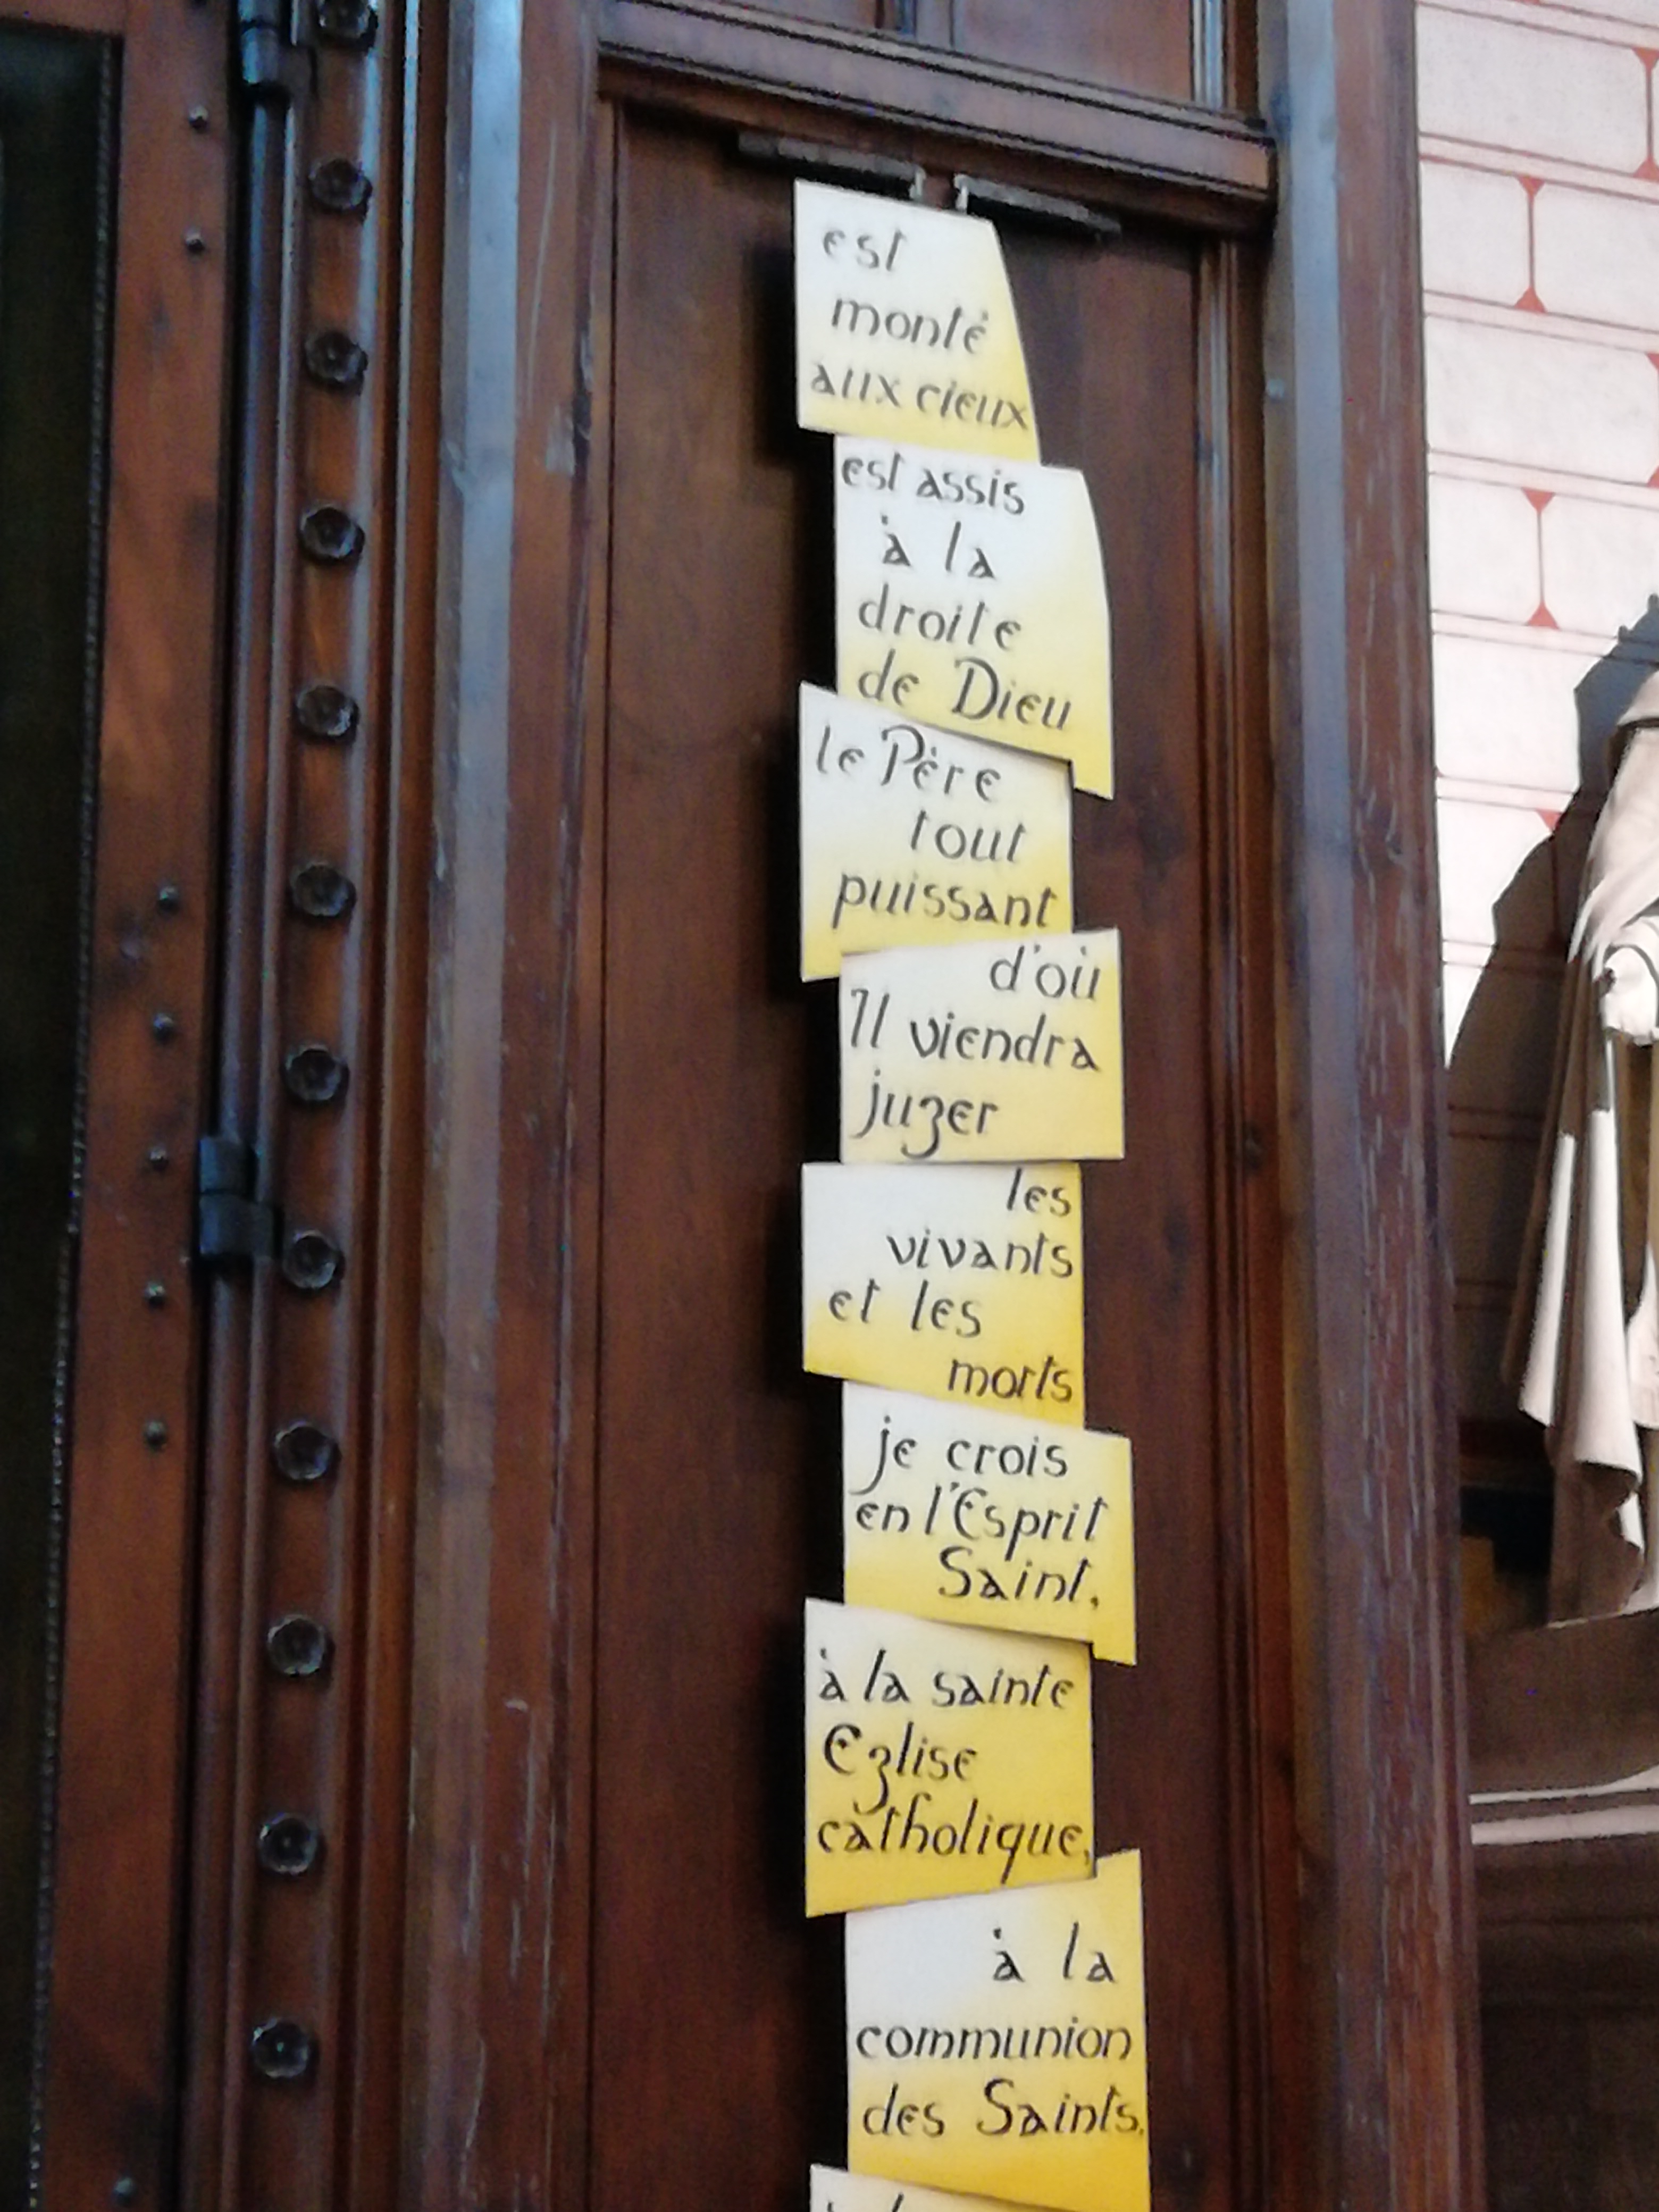 est
monté
aux cieux
est assis
à la
droite
de Dieu
le Père
tout
puissant
d'où
Il viendra
juger
les
vivants
et les
morts
je crois
en l'Esprit
Saint,
à la sainte
Eglise
catholique,
à la
communion
des Saints,